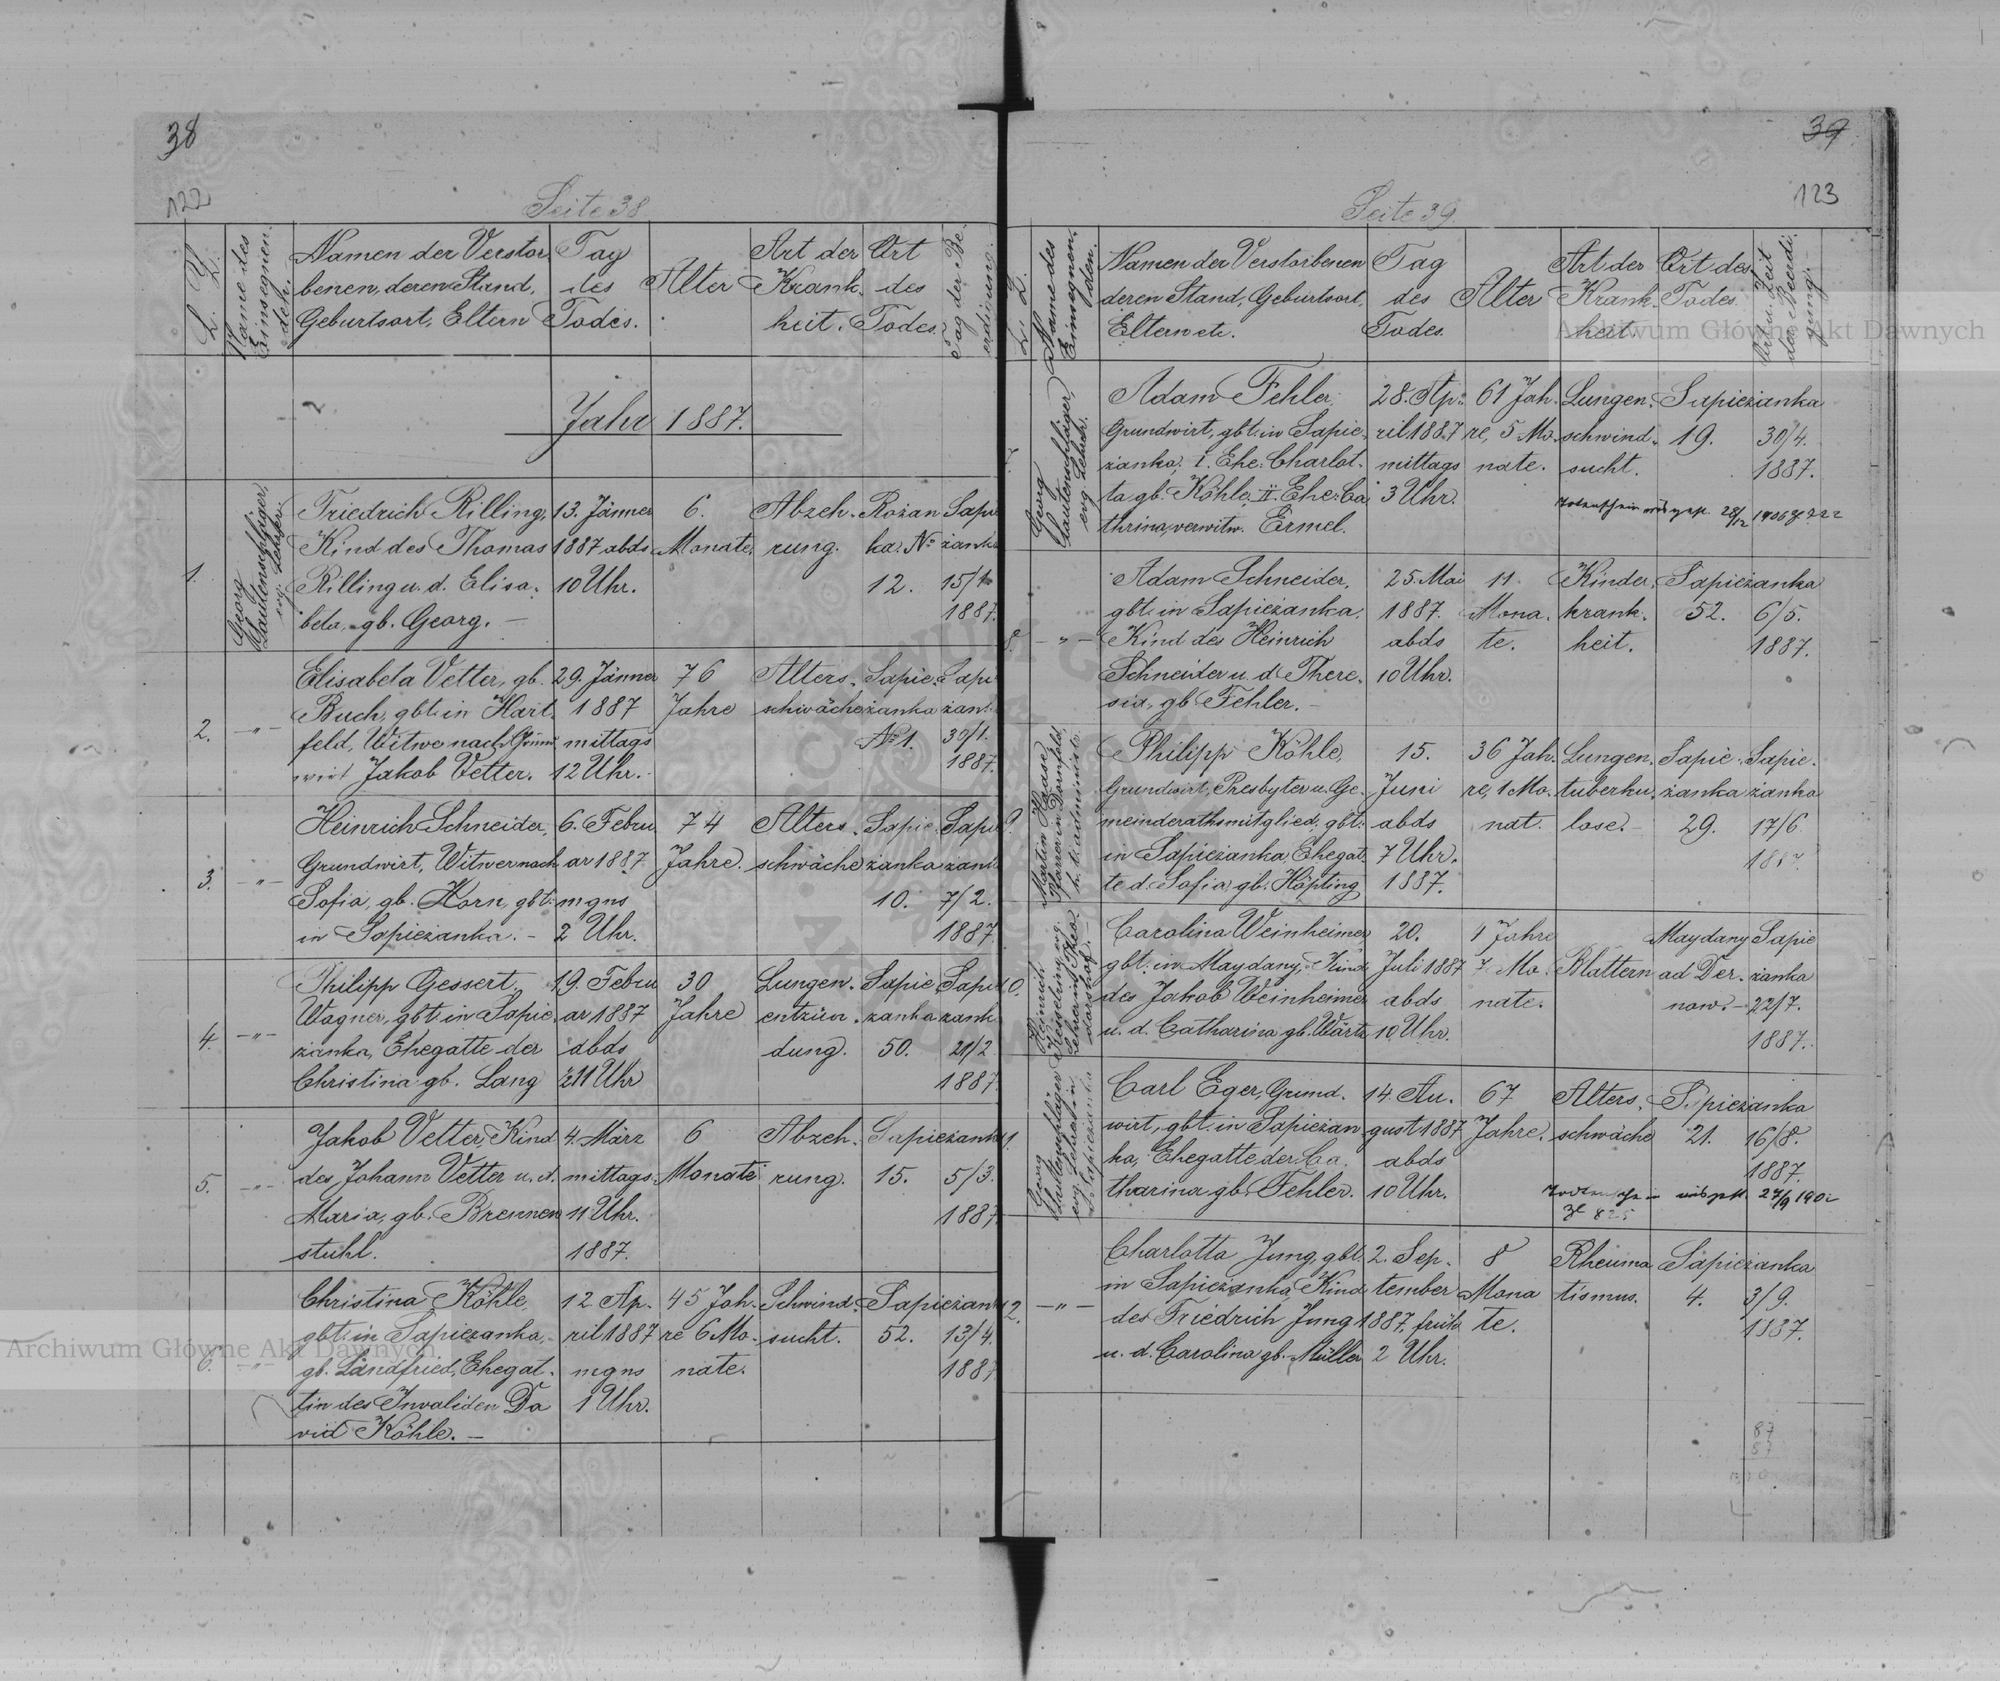 38
122
Seite 38
L. Z.
Name des
Einsegnen-
den.
Namen der Verstor-
benen, deren Stand,
Geburtsort, Eltern
Tag
des
Todes.
Alter
Art der
Krank-
heit.
Ort
des
Todes.
Tag der Be-
erdigung.
Jahr 1887.
1.
Georg
Lautenschläger,
evg. Lehrer
Friedrich Rilling,
Kind des Thomas
Rilling u. d. Elisa-
beta, gb. Georg. —
13. Jänner
1887 abds
10 Uhr.
6.
Monate.
Abzeh-
rung.
Rożan
ka. No
12.
Sapie
żanka
15/1
1887.
2.
—„—
Elisabeta Vetter, gb.
Buch, gbt. in Hart-
feld, Witwe nach Grund-
wirt Jakob Vetter.
29. Jänner
1887
mittags
12 Uhr.
76
Jahre
Alters-
schwäche
Sapie-
żanka
No 1.
Sapie
żank
30/1.
1887.
3.
—„—
Heinrich Schneider,
Grundwirt, Witwer nach
Sofia, gb. Korn, gbt.
in Sapieżanka. —
6. Febru
ar 1887
mgns
2 Uhr.
74
Jahre.
Alters-
schwäche
Sapie
żanka
10.
Sapie
żank
7/2.
1887
4.
—„—
Philipp Gessert,
Wagner, gbt. in Sapie-
żanka, Ehegatte der
Christina gb. Lang
19. Febru
ar 1887
abds
½11 Uhr
30
Jahre
Lungen-
entzün-
dung.
Sapie
żanka
50.
Sapie
żank
21/2
1887
5.
—„—
Jakob Vetter, Kind
des Johann Vetter u. d.
Maria, gb. Brennen
stuhl.
4. März
mittags
11 Uhr.
1887.
6
Monate
Abzeh-
rung.
Sapieżanka
15.
5/3.
1887
6.
—„—
Christina Köhle,
gbt. in Sapieżanka,
gb. Landfried, Ehegat-
tin des Invaliden Da
vid Köhle. —
12 Ap-
ril 1887
mgns
1 Uhr.
45 Jah-
re 6 Mo-
nate.
Schwind-
sucht.
Sapieżank
52.
13/4.
1887
39
123
Seite 39.
L. Z.
Name des
Einsegnen-
den.
Namen der Verstorbenen
deren Stand, Geburtsort,
Eltern etc.
Tag
des
Todes.
Alter
Art der
Krank-
heit.
Ort des
Todes.
Ort u. Zeit
der Beerdi-
gung. —
7.
Georg
Lautenschläger,
evg. Lehr.
Adam Fehler,
Grundwirt, gbt. in Sapie-
żanka, I. Ehe: Charlot-
ta gb. Köhle, II. Ehe: Ca
thrina, verwitw. Ermel.
28. Ap-
ril 1887
mittags
3 Uhr.
61 Jah-
re, 5 Mo-
nate.
Lungen-
schwind-
sucht.
Sapieżanka
19.
30/4.
1887.
Todenschein ausgest. 28/12 1906 Z. 222
8.
—„—
Adam Schneider,
gbt. in Sapieżanka,
Kind des Heinrich
Schneider u. d. There-
sia, gb Fehler. —
25. Mai
1887.
abds
10 Uhr.
11
Mona-
te.
Kinder-
krank-
heit.
Sapieżanka
52.
6/5.
1887.
9.
Martin Haase,
Pfarrer in Dornfeld,
h. t. administr.
Philipp Köhle,
Grundwirt, Presbyter u. Ge-
meinderathsmitglied, gbt.
in Sapieżanka, Ehegat-
te d. Sofia gb. Höpting
15.
Juni
abds
7 Uhr.
1887.
36 Jah-
re, 1 Mo-
nat.
Lungen-
tuberku-
lose. —
Sapie-
żanka
29.
Sapie-
żanka
17/6
1887.
10.
Heinrich
Carolina Weinheimer,
gbt. in Maydany, Kind
des Jakob Weinheimer
u. d. Catharina gb. Wartz
20.
Juli 1887
abds
10 Uhr.
4 Jahre
7 Mo-
nate.
Blattern
Maydany
ad Der-
now. —
Sapie
żanka
22/7.
1887.
11.
Georg
Lautenschläger
evg. Lehrer in
Sapieżanka
Carl Eger, Grund-
wirt, gbt. in Sapieżan
ka, Ehegatte der Ca-
tharina gb. Fehler.
14. Au-
gust 1887
abds
10 Uhr.
67
Jahre.
Alters-
schwäche
Sapieżanka
21.
16/8.
1887.
Todtenschein ausgest. 27/9 190
Zl 825
12.
—„—
Charlotta Jung, gbt.
in Sapieżanka, Kind
des Friedrich Jung
u. d. Carolina gb. Müller
2. Sep-
tember
1887. früh
2 Uhr.
8
Mona
te.
Rheuma
tismus.
Sapieżanka
4.
3/9.
1887.
87
87
Archiwum Główne Akt Dawnych
Archiwum Główne Akt Dawnych